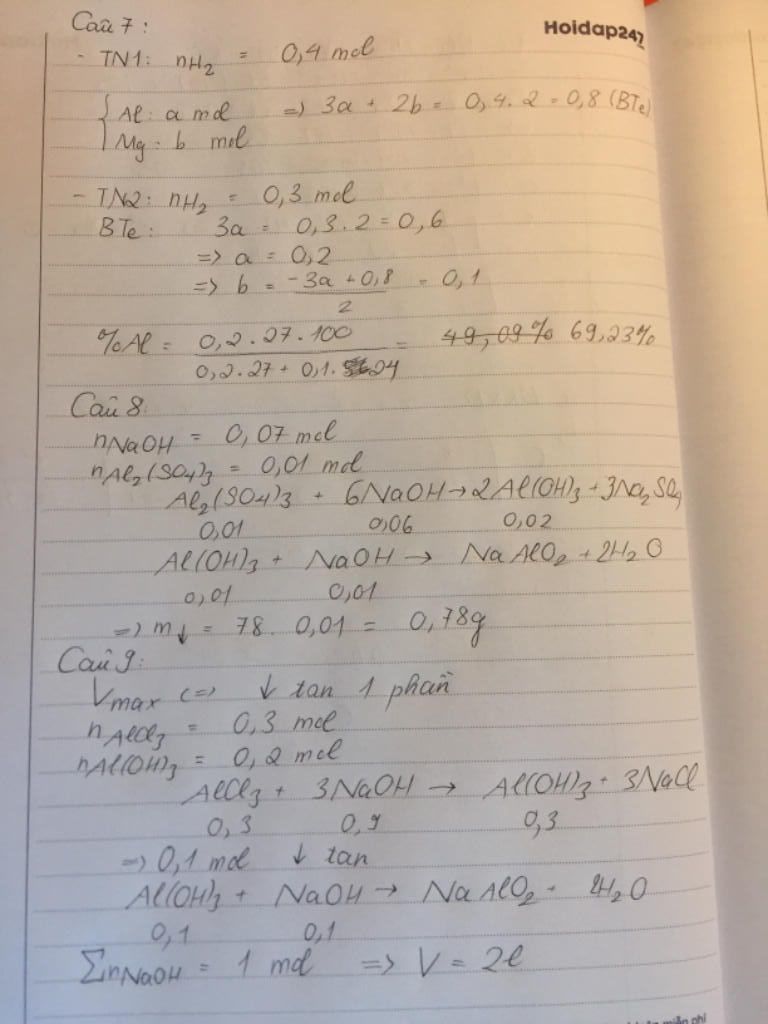 Câu 7:
Hoidap247
- TN1: nH₂ = 0,4 mol
{ Al: a mol => 3a + 2b = 0,4 . 2 = 0,8 (BTe)
Mg: b mol
- TN2: nH₂ = 0,3 mol
BTe: 3a = 0,3 . 2 = 0,6
=> a = 0,2
=> b = (-3a + 0,8)/2 = 0,1
%Al = (0,2 . 27 . 100)/(0,2 . 27 + 0,1 . 24) = 49,09% 69,23%
Câu 8:
nNaOH = 0,07 mol
nAl₂(SO₄)₃ = 0,01 mol
Al₂(SO₄)₃ + 6NaOH → 2Al(OH)₃ + 3Na₂SO₄
0,01 0,06 0,02
Al(OH)₃ + NaOH → NaAlO₂ + 2H₂O
0,01 0,01
=> m↓ = 78 . 0,01 = 0,78g
Câu 9:
Vmax <=> ↓ tan 1 phần
nAlCl₃ = 0,3 mol
nAl(OH)₃ = 0,2 mol
AlCl₃ + 3NaOH → Al(OH)₃ + 3NaCl
0,3 0,9 0,3
=> 0,1 mol ↓ tan
Al(OH)₃ + NaOH → NaAlO₂ + 2H₂O
0,1 0,1
ΣnNaOH = 1 mol => V = 2l
miễn phí